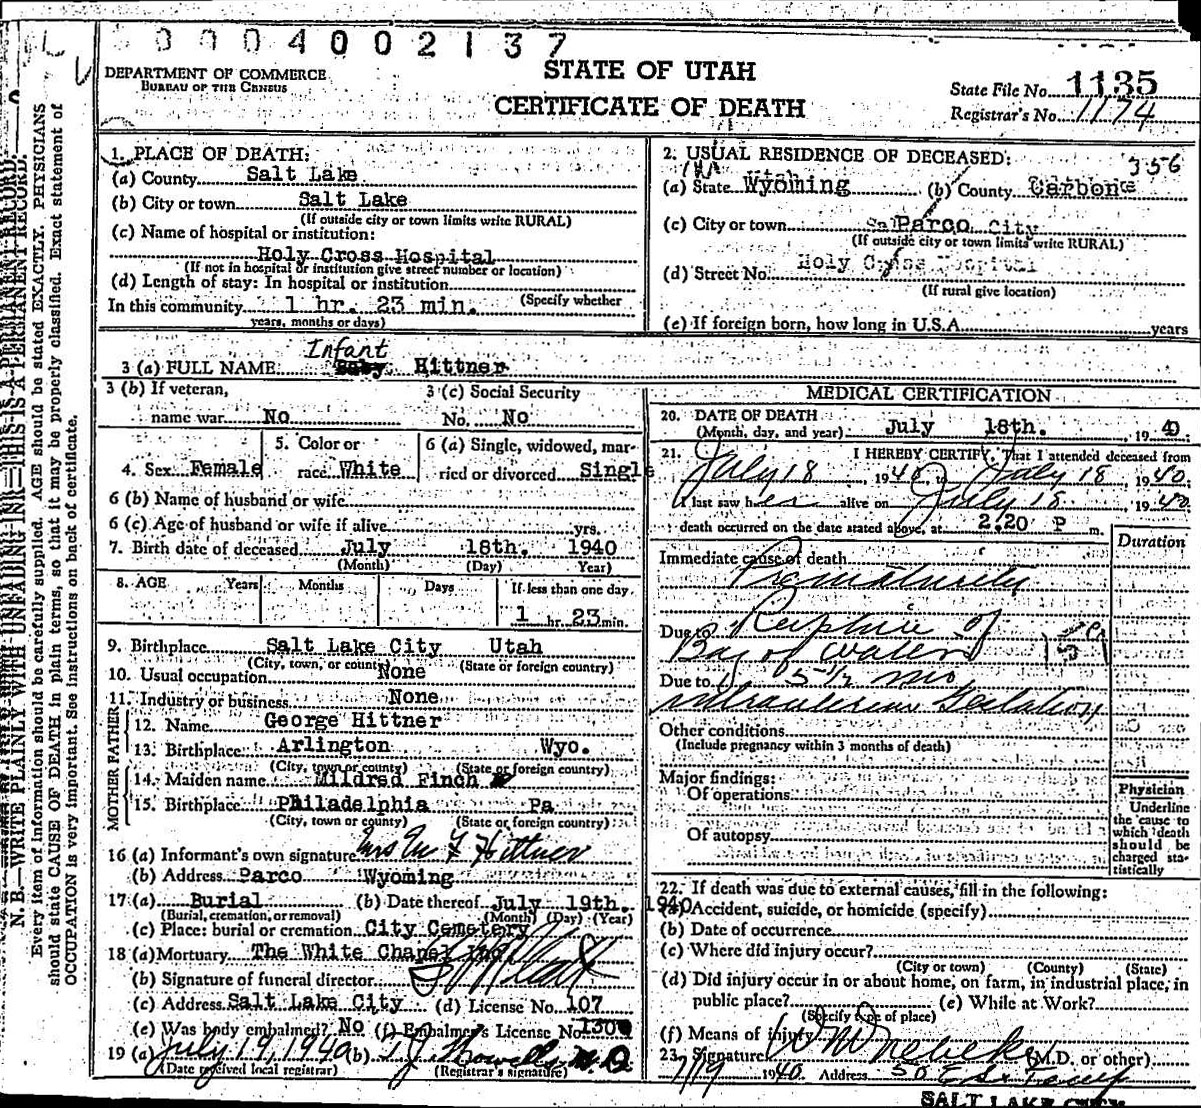 0004002137
DEPARTMENT OF COMMERCE
BUREAU OF THE CENSUS
STATE OF UTAH
CERTIFICATE OF DEATH
State File No. 1135
Registrar's No. 1174
N. B.—WRITE PLAINLY WITH UNFADING INK—THIS IS A PERMANENT RECORD.
Every item of information should be carefully supplied. AGE should be stated EXACTLY. PHYSICIANS
should state CAUSE OF DEATH in plain terms, so that it may be properly classified. Exact statement of
OCCUPATION is very important. See instructions on back of certificate.
1. PLACE OF DEATH:
(a) County Salt Lake
(b) City or town Salt Lake
(If outside city or town limits write RURAL)
(c) Name of hospital or institution:
Holy Cross Hospital
(If not in hospital or institution give street number or location)
(d) Length of stay: In hospital or institution
In this community 1 hr. 23 min. (Specify whether
years, months or days)
2. USUAL RESIDENCE OF DECEASED: 356
(a) State Wyoming (b) County Carbon
(c) City or town Parco City
(If outside city or town limits write RURAL)
(d) Street No. Holy Cross Hospital
(If rural give location)
(e) If foreign born, how long in U.S.A. years
3 (a) FULL NAME Infant Baby Hittner
3 (b) If veteran,
name war No
3 (c) Social Security
No. No
4. Sex Female
5. Color or
race White
6 (a) Single, widowed, mar-
ried or divorced Single
6 (b) Name of husband or wife
6 (c) Age of husband or wife if alive yrs.
7. Birth date of deceased July 18th. 1940
(Month) (Day) Year)
8. AGE Years Months Days If less than one day
1 hr. 23 min.
9. Birthplace Salt Lake City Utah
(City, town, or county) (State or foreign country)
10. Usual occupation None
11. Industry or business None
FATHER
12. Name George Hittner
13. Birthplace Arlington Wyo.
(City, town or county) (State or foreign country)
MOTHER
14. Maiden name Mildred Finch
15. Birthplace Philadelphia Pa
(City, town or county) (State or foreign country)
16 (a) Informant's own signature Mrs Hittner
(b) Address Parco Wyoming
17 (a) Burial (b) Date thereof July 19th. 1940
(Burial, cremation, or removal) (Month) (Day) (Year)
(c) Place: burial or cremation City Cemetery
18 (a) Mortuary The White Chapel Inc
(b) Signature of funeral director
(c) Address Salt Lake City (d) License No. 107
(e) Was body embalmed? No (f) Embalmer's License No. 130
19 (a) July 19, 1940 (b) M.D.
(Date received local registrar) (Registrar's signature)
MEDICAL CERTIFICATION
20. DATE OF DEATH
(Month, day, and year) July 18th. , 19 40
21. I HEREBY CERTIFY, That I attended deceased from
July 18 1940, to July 18, 1940.
I last saw her alive on July 18, 1940
death occurred on the date stated above, at 2.20 P m.
Duration
Immediate cause of death
Prematurity
Due to Rupture of
Bag of waters
Due to 5 1/2 mo
intrauterine gestation
Other conditions
(Include pregnancy within 3 months of death)
Major findings:
Of operations
Of autopsy
Physician
Underline
the cause to
which death
should be
charged sta-
tistically
22. If death was due to external causes, fill in the following:
(a) Accident, suicide, or homicide (specify)
(b) Date of occurrence
(c) Where did injury occur?
(City or town) (County) (State)
(d) Did injury occur in or about home, on farm, in industrial place, in
public place? (e) While at Work?
(Specify type of place)
(f) Means of injury
23. Signature (M.D. or other)
7/19 1940 Address 50 E So Temp
SALT LAKE CITY